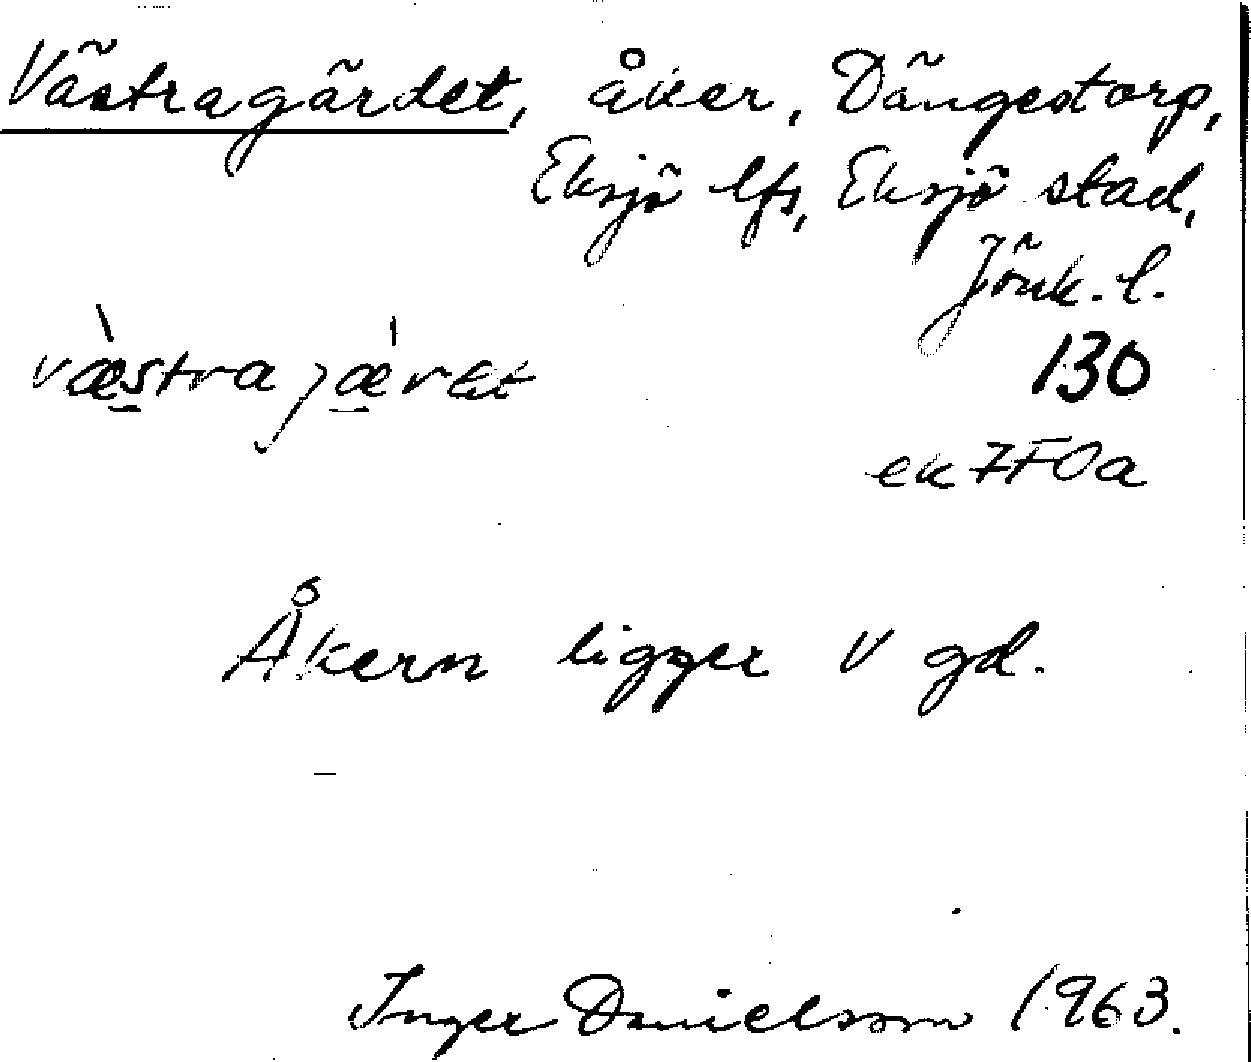 Västragärdet, åker, Dängestorp,
Eksjö lfs, Eksjö stad,
Jönk. l.
130
væ̀stra jæ̀rdet
ek 7F0a
Åkern ligger V gd.
Inger Danielsson 1963.